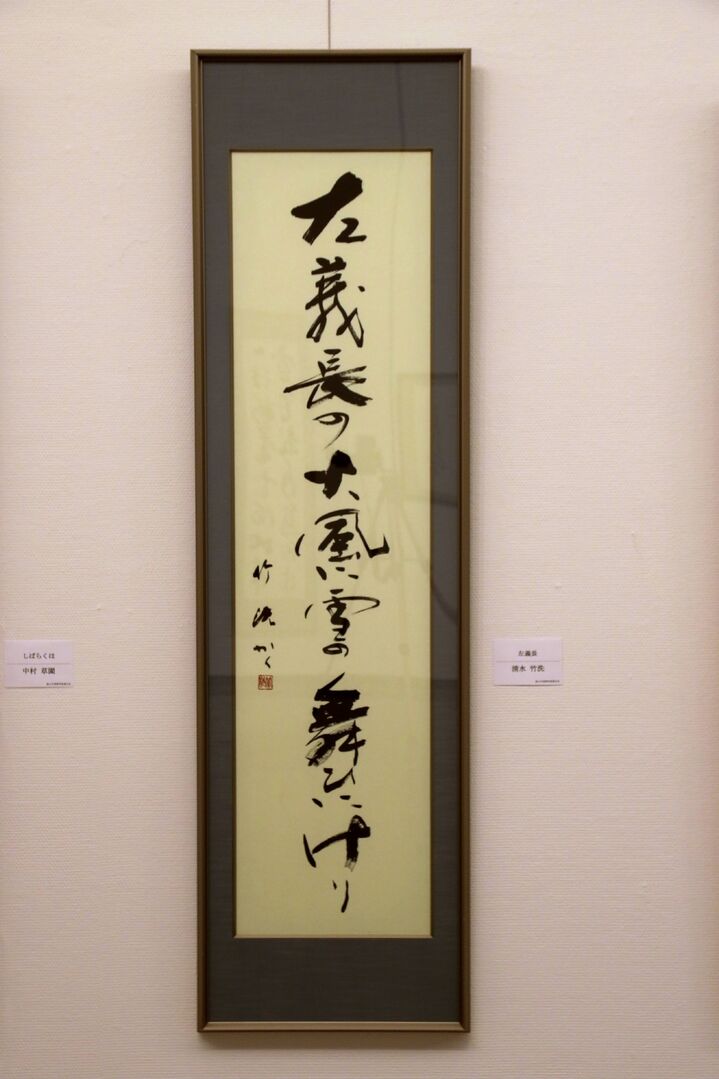 左義長の大風に雪の舞ひにけり
竹洗かく
しばらくは
中村 草園
左義長
清水 竹洗